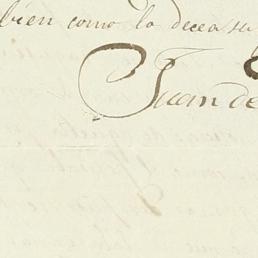 bien como lo decea su
Juan de